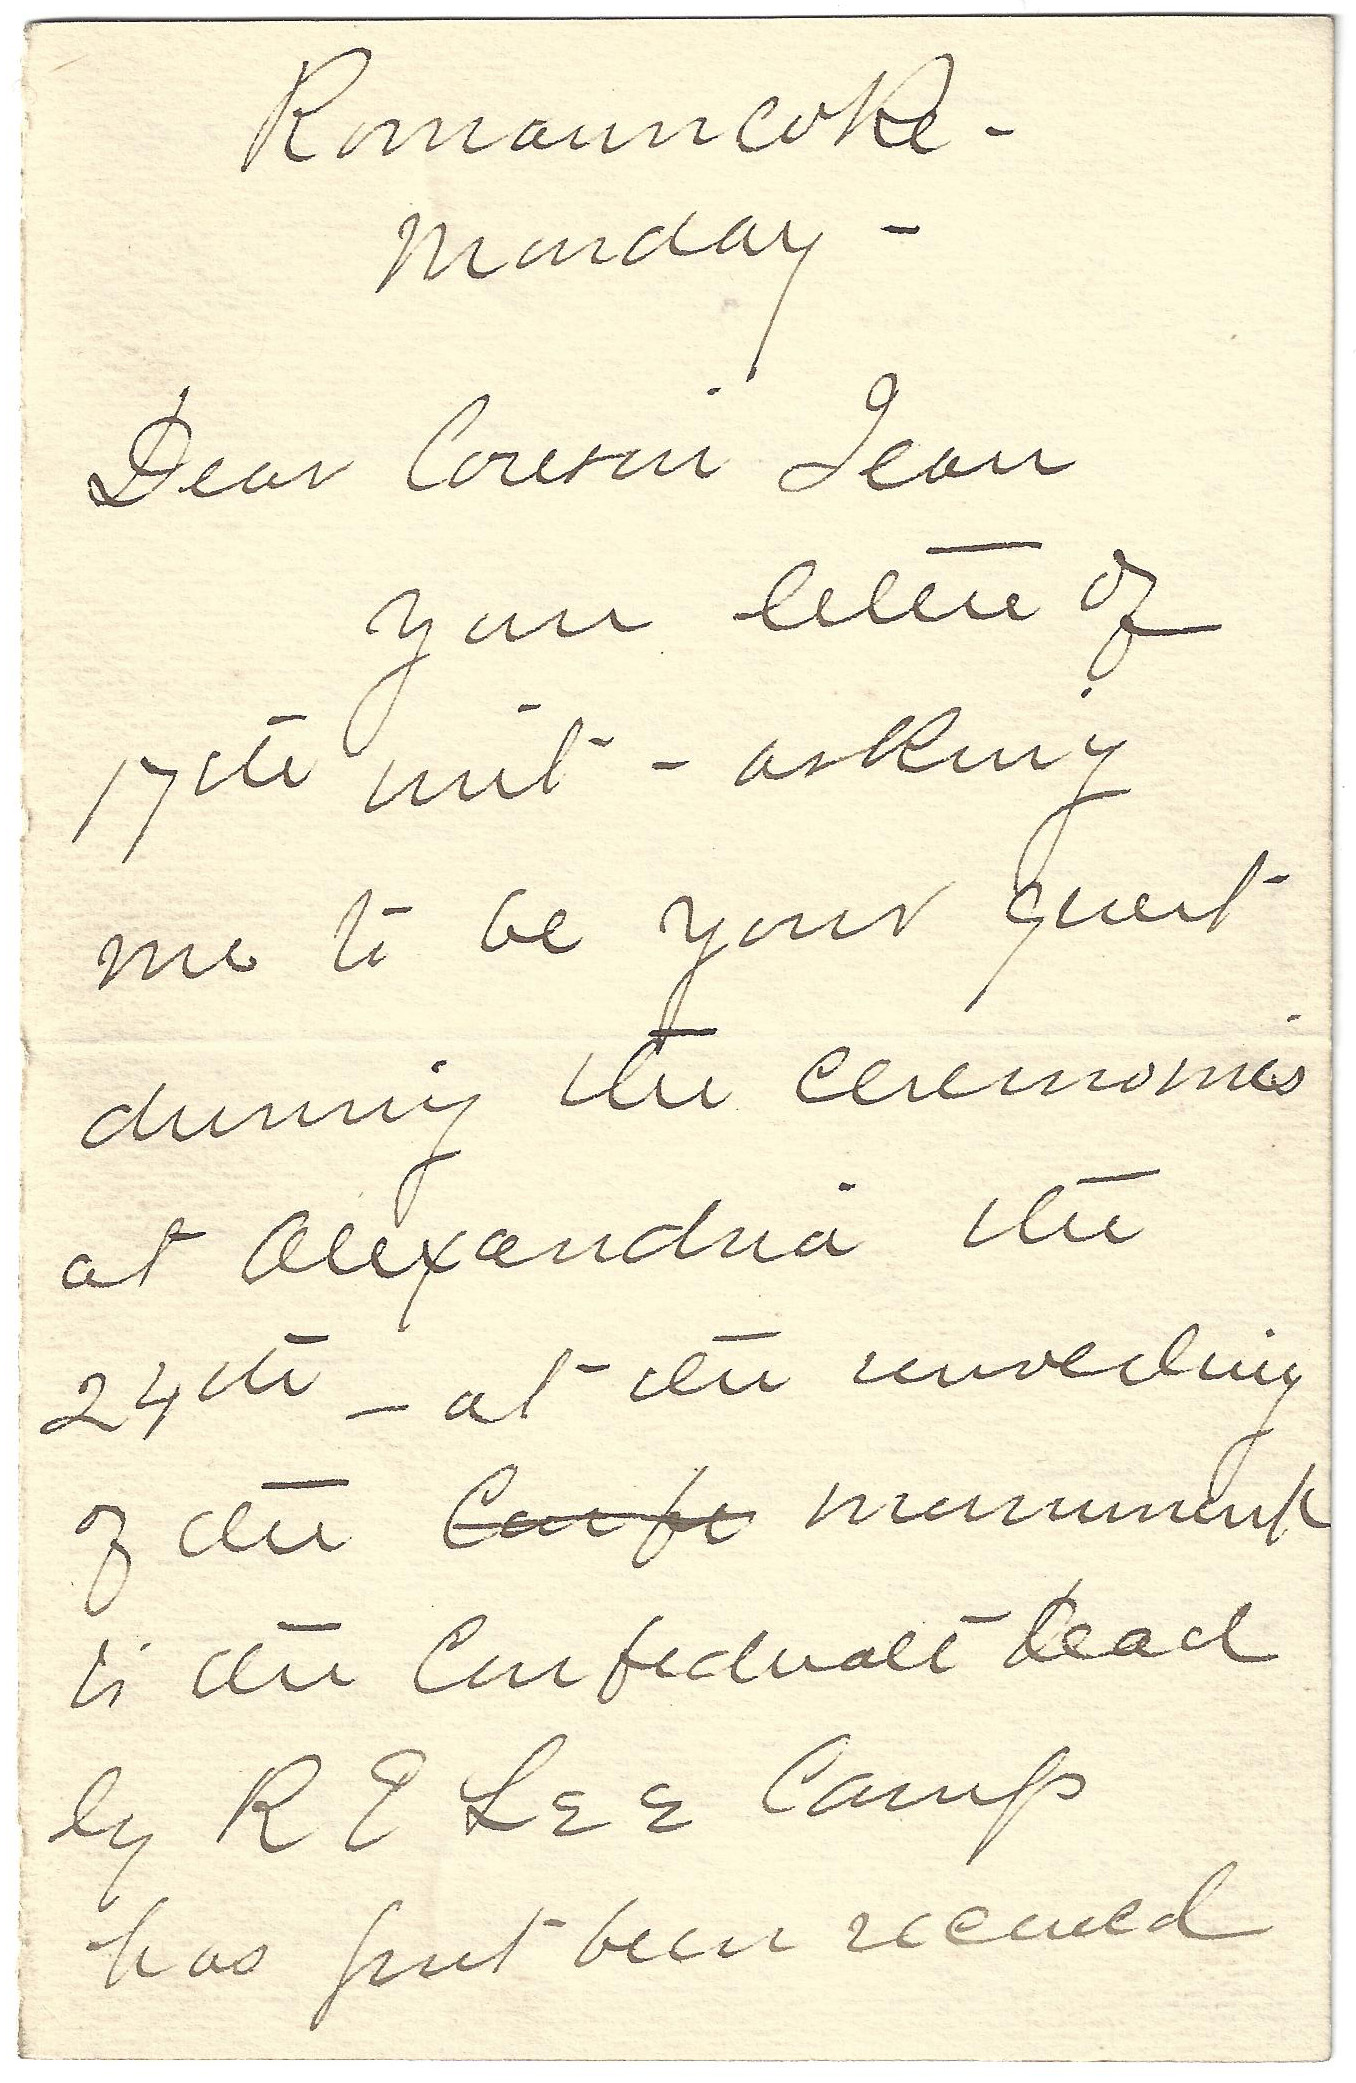 Romancoke -
Monday -
Dear Cousin Jean
your letter of
17th inst - asking
me to be your guest
during the ceremonies
at Alexandria the
24th - at the unveiling
of the Confe monument
to the Confederate Dead
by R E Lee Camp
has just been received